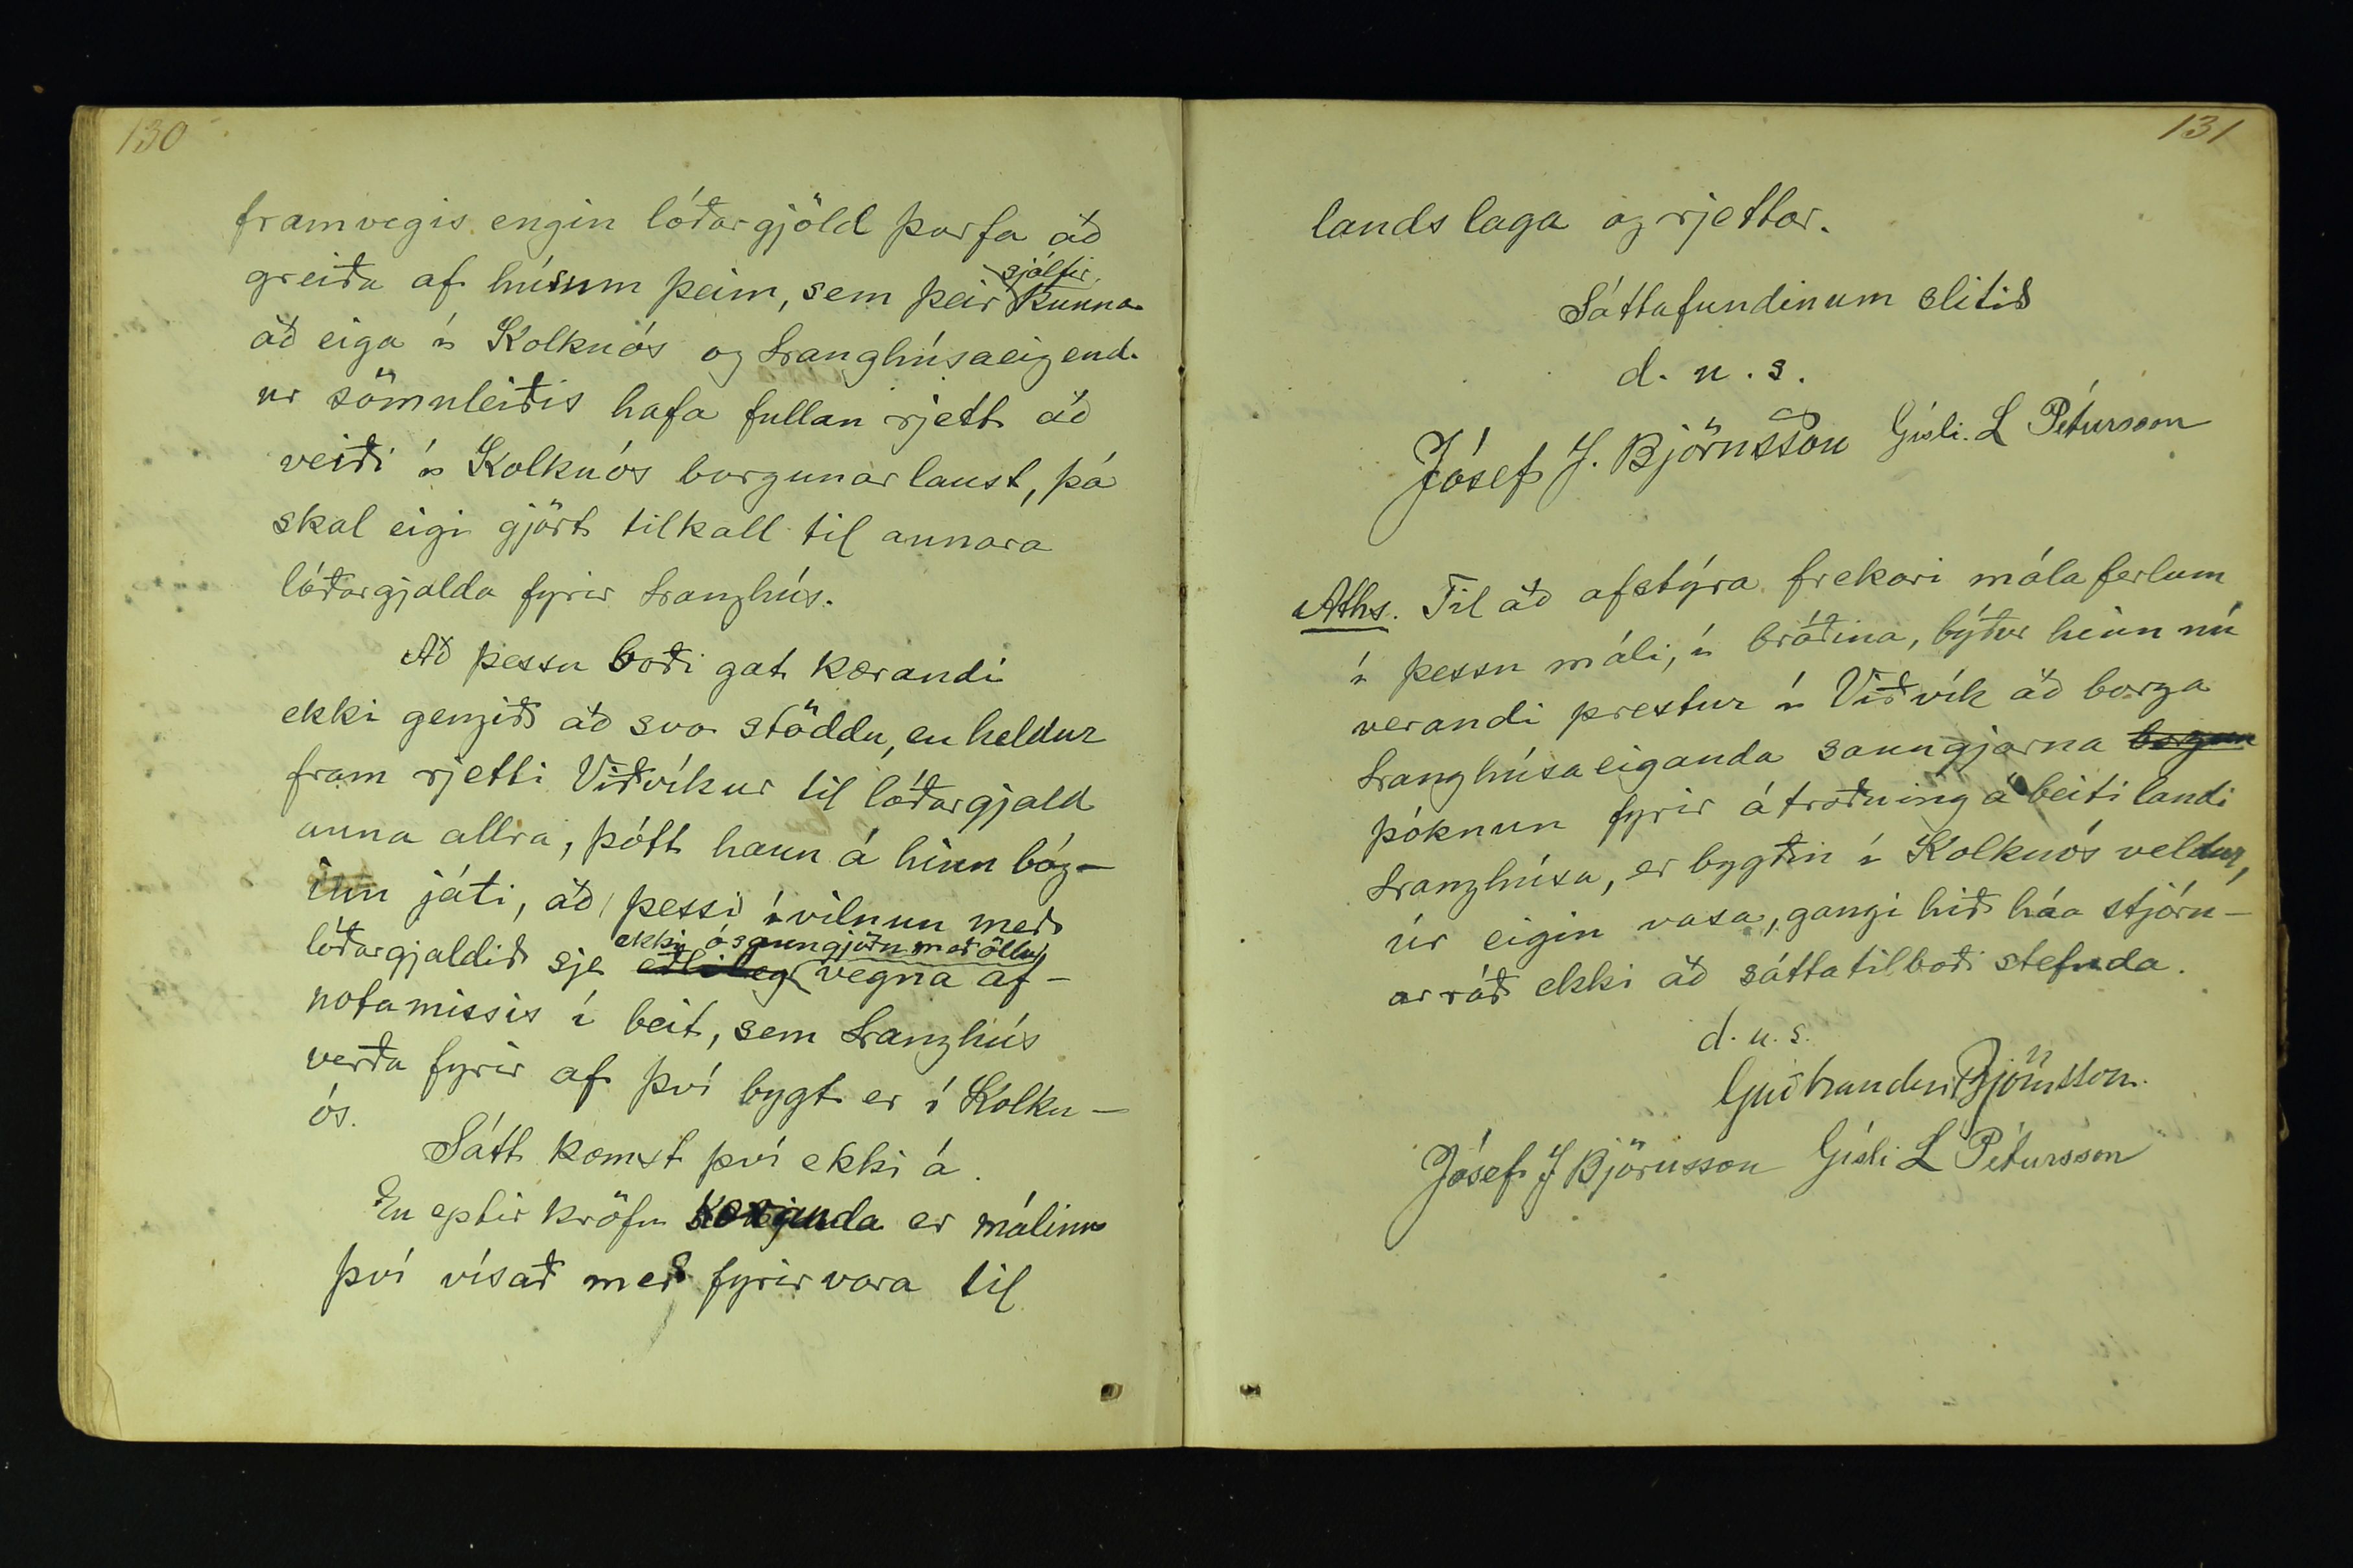 130
framvegis engin lóðargjöld þurfa að
greiða af húsum þeim, sem þeir sjálfir kunna
að eiga í Kolkuós og Langhúsaeigend-
ur sömuleiðis hafa fullan rjett að
veiði í Kolkuós borgunarlaust, þá
skal eigi gjört tilkall til annara
lóðargjalda fyrir Langhús.
Að þessu boði gat kærandi
ekki gengið að svo stöddu, en heldur
fram rjetti Viðvíkur til lóðargjald
anna allra, þótt hann á hinn bóg-
inn játi, að þessi ívilnun með
lóðargjaldið sje ekki ósanngjörn með öllu, vegna af-
notamissis í beit, sem Langhús
verða fyrir af því bygt er í Kolku-
ós.
Sátt komst því ekki á.
En eptir kröfu kæranda er málinu
því vísað með fyrirvara til
131
landslaga og rjettar.
Sáttafundinum slitið
d. u. s.
Jósef J. Björnsson Gísli. L Pétursson
Aths. Til að afstýra frekari málaferlum
í þessu máli, í bráðina, býður hinn nú
verandi prestur í Viðvík að borga
Langhúsaeiganda sanngjarna borgun
þóknun fyrir átroðning á beitilandi
Langhúsa, er bygðin í Kolkuós veldur,
úr eigin vasa, gangi hið háa stjórn-
arráð ekki að sáttatilboði stefnda.
d. u. s.
Guðbrandur Björnsson.
Jósef J Björnsson Gísli L Pétursson